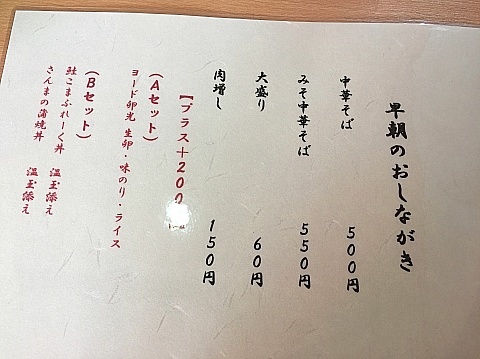 早朝のおしながき
中華そば 500円
みそ中華そば 550円
大盛り 60円
肉増し 150円
【プラス+200
(Aセット)
ヨード卵光 生卵・味のり・ライス
(Bセット)
鮭こまふれーく丼 温玉添え
さんまの蒲焼丼 温玉添え